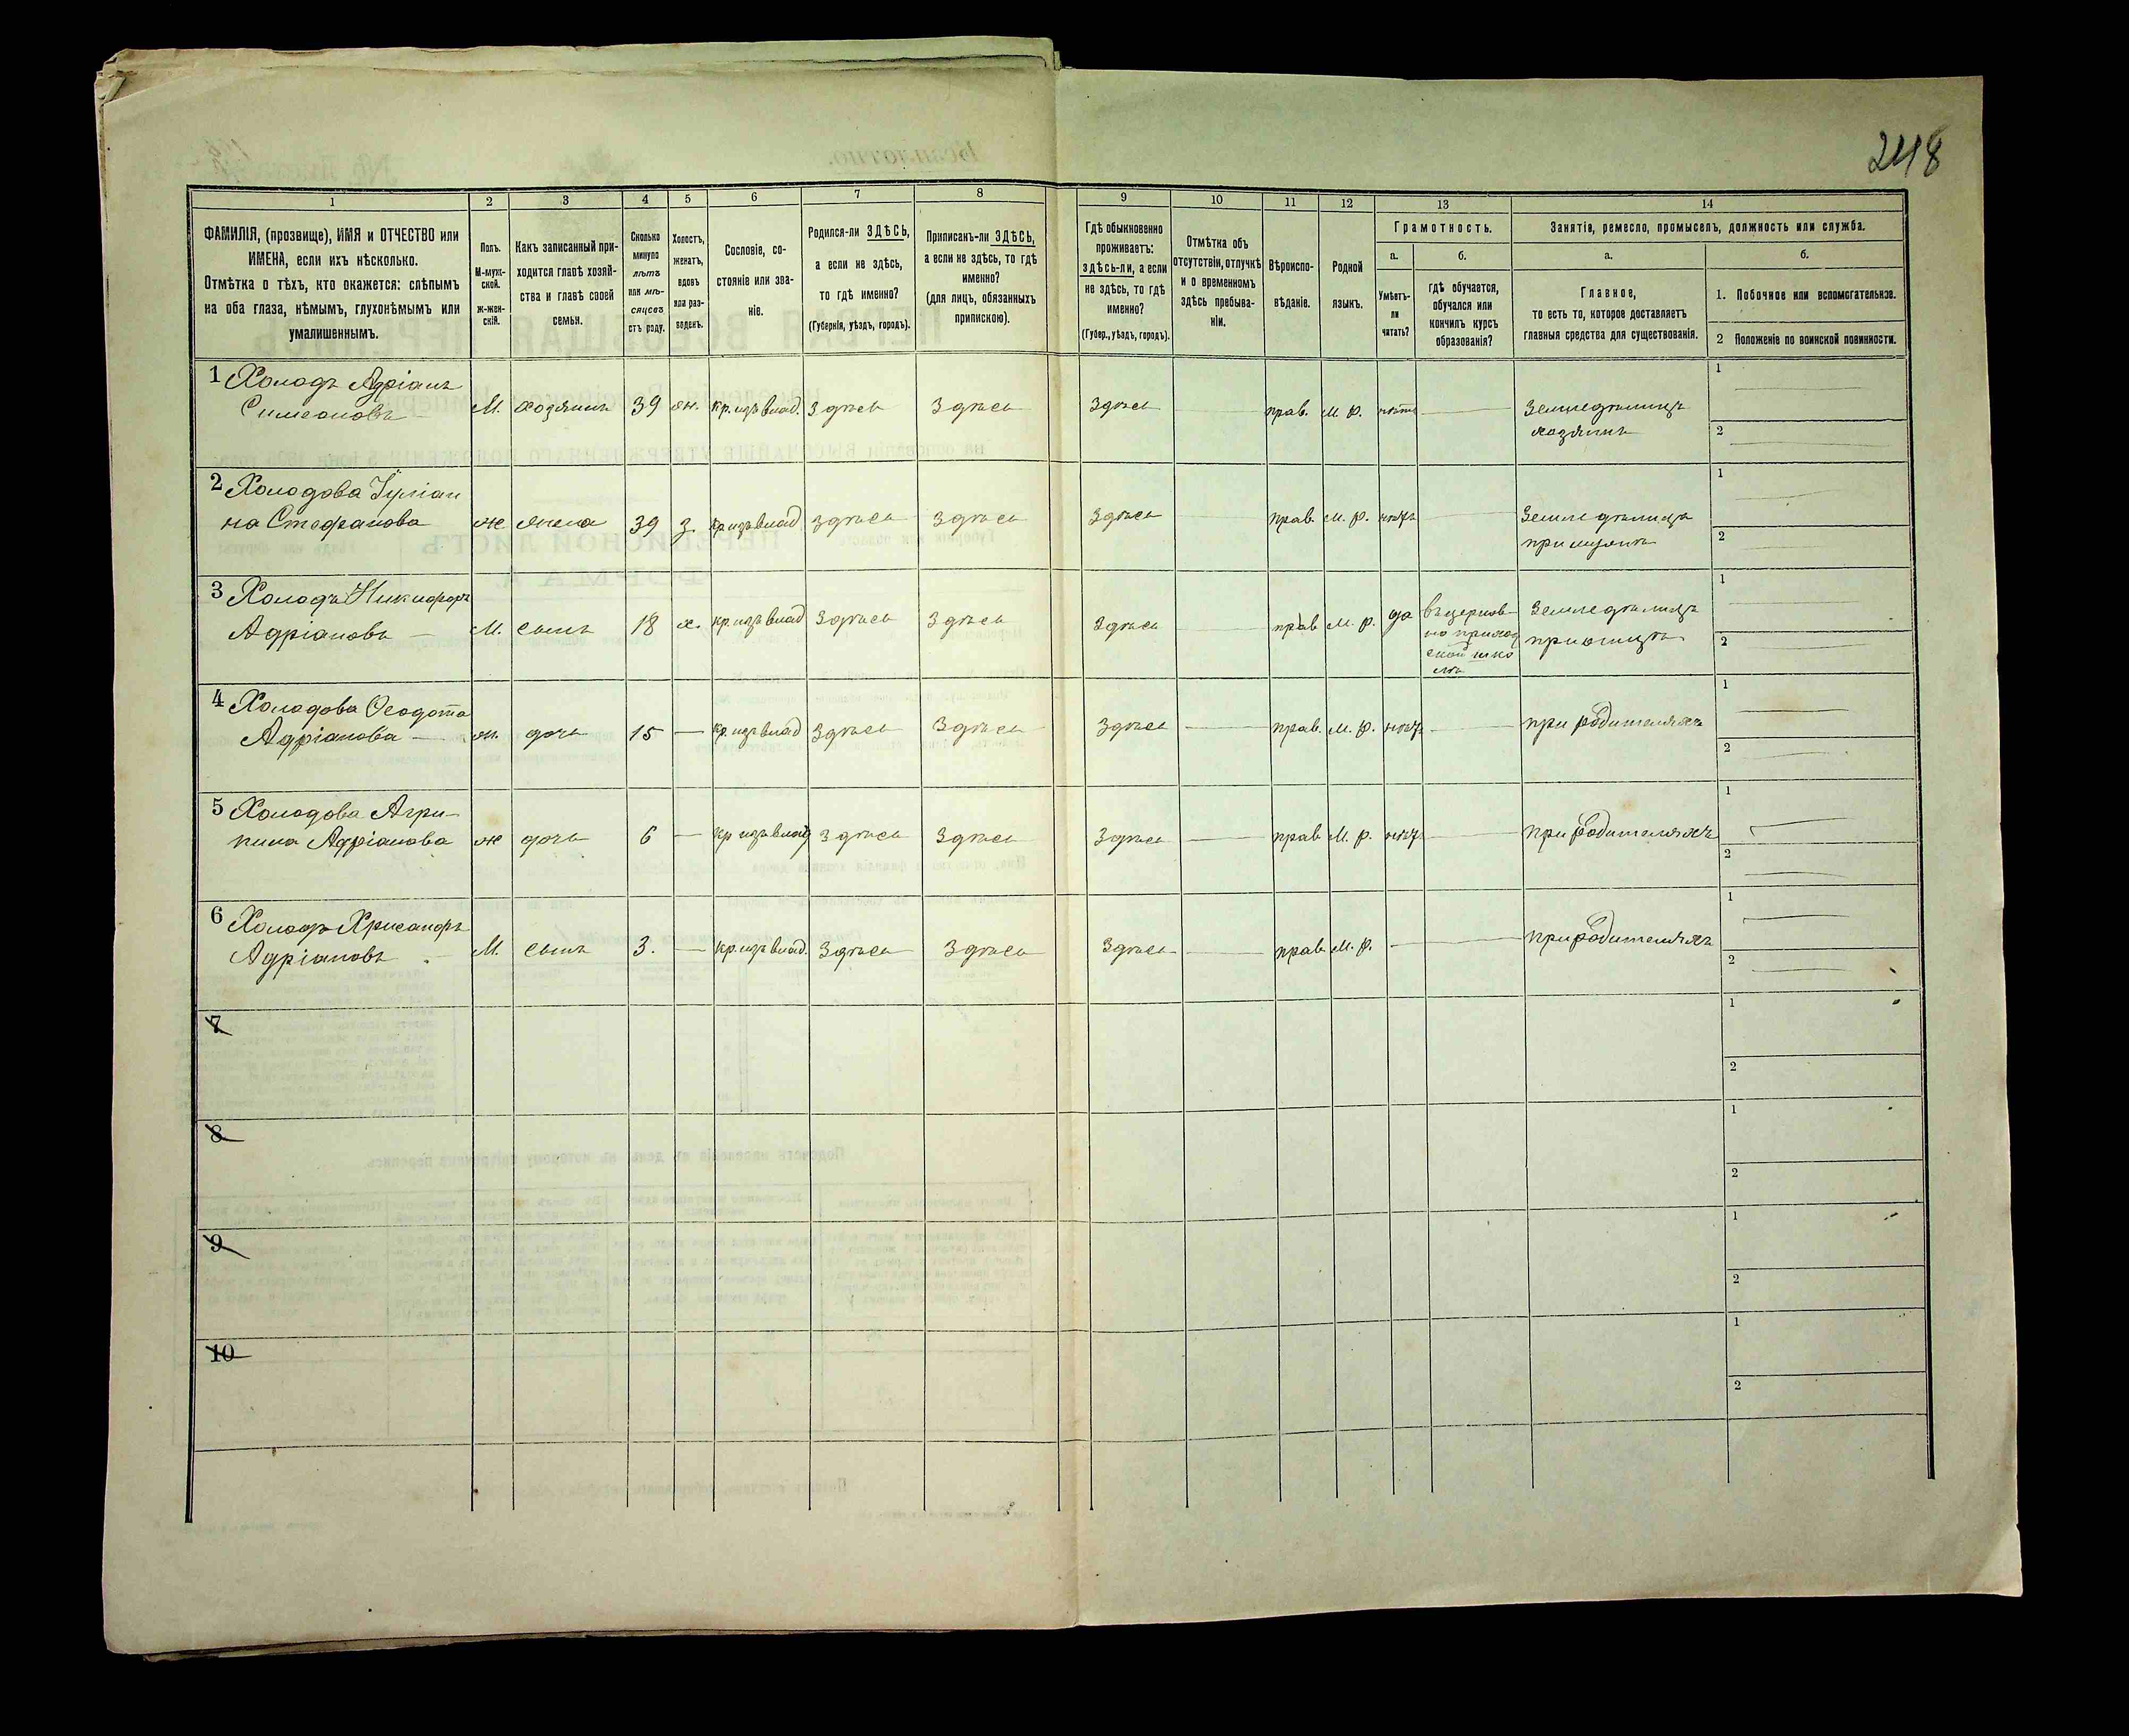 248
1 2 3 4 5 6 7 8 9 10 11 12 13 14
ФАМИЛІЯ, (прозвище), ИМЯ и ОТЧЕСТВО или
ИМЕНА, если ихъ нѣсколько.
Отмѣтка о тѣхъ, кто окажется: слѣпымъ
на оба глаза, нѣмымъ, глухонѣмымъ или
умалишеннымъ.
Полъ.
М-муж-
ской.
Ж-жен-
скій.
Какъ записанный при-
ходится главѣ хозяй-
ства и главѣ своей
семьи.
Сколько
минуло
лѣтъ
или мѣ-
сяцевъ
отъ роду.
Холостъ,
женатъ,
вдовъ
или раз-
веденъ.
Сословіе, со-
стояніе или зва-
ніе.
Родился-ли ЗДѢСЬ,
а если не здѣсь,
то гдѣ именно?
(Губернія, уѣздъ, городъ).
Приписанъ-ли ЗДѢСЬ,
а если не здѣсь, то гдѣ
именно?
(для лицъ, обязанныхъ
припискою).
Гдѣ обыкновенно
проживаетъ:
здѣсь-ли, а если
не здѣсь, то гдѣ
именно?
(Губер., уѣздъ, городъ).
Отмѣтка объ
отсутствіи, отлучкѣ
и о временномъ
здѣсь пребыва-
ніи.
Вѣроиспо-
вѣданіе.
Родной
языкъ.
Грамотность.
а.
Умѣетъ-
ли
читать?
б.
гдѣ обучается,
обучался или
кончилъ курсъ
образованія?
Занятія, ремесло, промыселъ, должность или служба.
а.
Главное,
то есть то, которое доставляетъ
главныя средства для существованія.
б.
1. Побочное или вспомогательное.
2 Положеніе по воинской повинности.
1 Холодъ Адріанъ
Симеоновъ М. хозяинъ 39 жн. кр. изъ влад. здѣсь здѣсь здѣсь прав. м. р. нѣтъ земледѣлецъ 1
хозяинъ 2
2 Холодова Іуліан
на Стефанова ж жена 39 з. кр изъ влад здѣсь здѣсь здѣсь прав. м. р. нѣтъ земледѣлица 1
при мужѣ 2
3 Холодъ Никифоръ
Адріановъ М. сынъ 18 х. кр изъ влад здѣсь здѣсь здѣсь прав м. р. да въ церков- земледѣлецъ 1
но приход при отцѣ 2
ской шко
лѣ
4 Холодова Ѳеодота
Адріанова ж. дочь 15 кр. изъ влад здѣсь здѣсь здѣсь прав. м. р. нѣтъ при родителяхъ 1
2
5 Холодова Агри-
пина Адріанова ж дочь 6 кр изъ влад здѣсь здѣсь здѣсь прав м. р. нѣтъ при родителяхъ 1
2
6 Холодъ Хрисанфъ
Адріановъ М. сынъ 3. кр. изъ влад. здѣсь здѣсь здѣсь прав. м. р. при родителяхъ 1
2
7 1
2
8 1
2
9 1
2
10 1
2